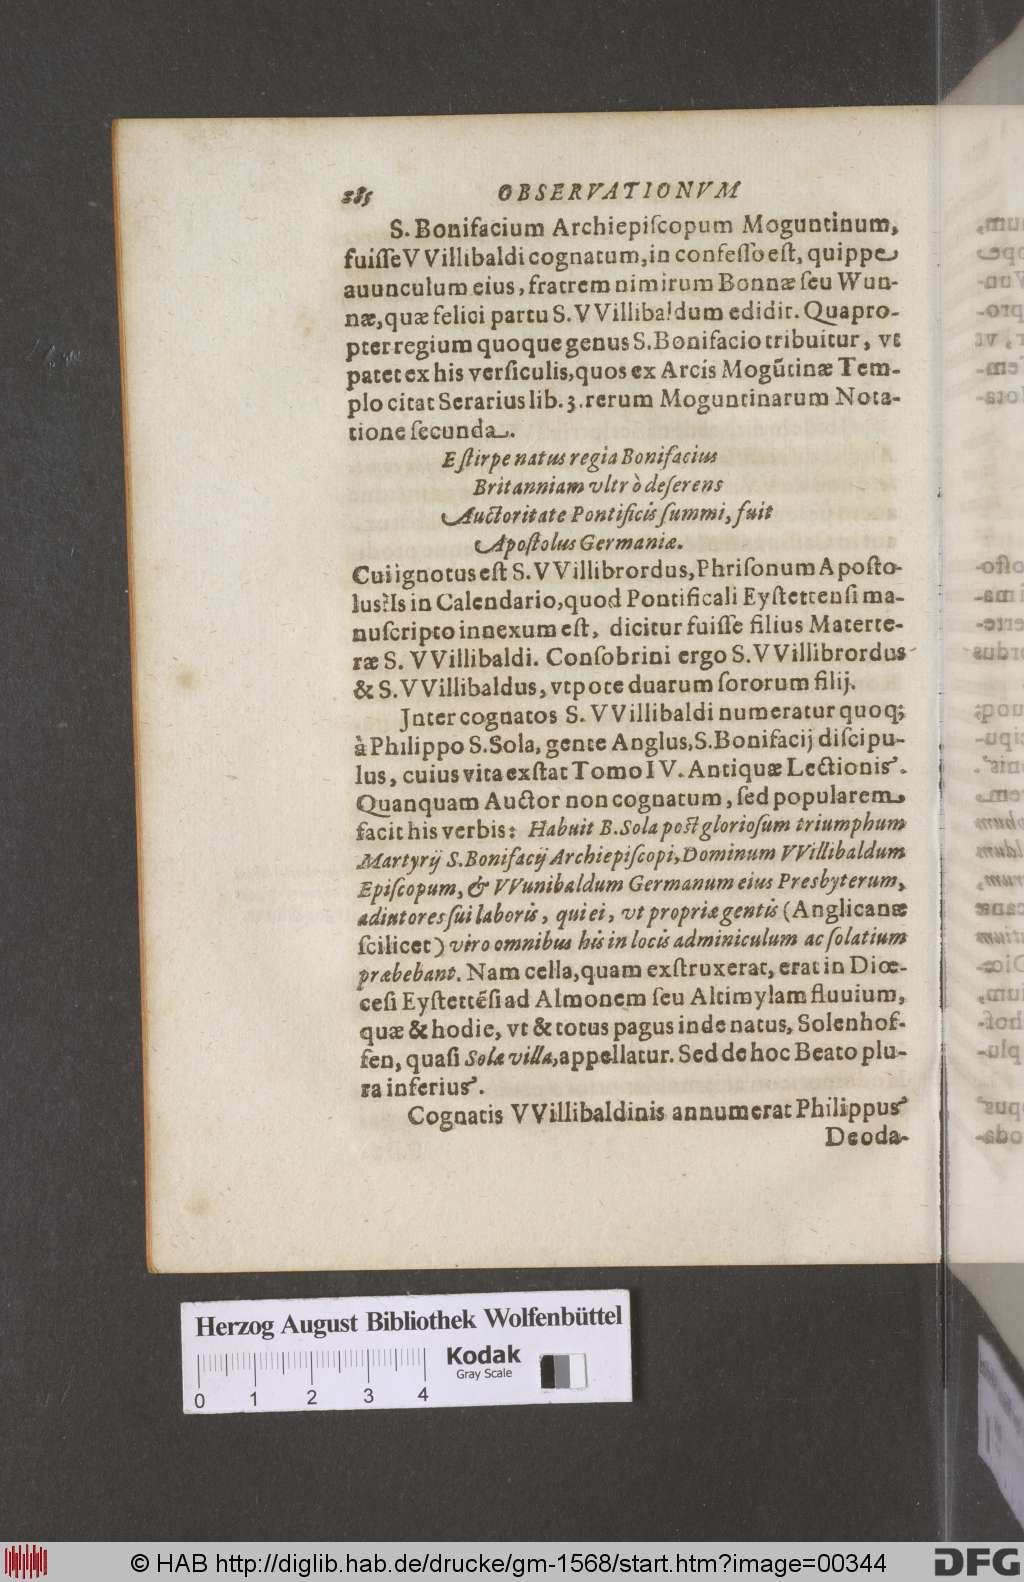 285 OBSERVATIONVM
S. Bonifacium Archiepiſcopum Moguntinum,
fuiſſe VVillibaldi cognatum, in confeſſo eſt, quippe
auunculum eius, fratrem nimirum Bonnæ ſeu Wun-
næ, quæ felici partu S. VVillibaldum edidit. Quapro-
pter regium quoque genus S. Bonifacio tribuitur, vt
patet ex his verſiculis, quos ex Arcis Mogũtinæ Tem-
plo citat Serarius lib. 3. rerum Moguntinarum Nota-
tione ſecunda.
E ſtirpe natus regia Bonifacius
Britanniam vltrò deſerens
Auctoritate Pontificis ſummi, fuit
Apoſtolus Germaniæ.
Cui ignotus eſt S. VVillibrordus, Phriſonum Apoſto-
lus? Is in Calendario, quod Pontificali Eyſtettenſi ma-
nuſcripto innexum eſt, dicitur fuiſſe filius Materte-
ræ S. VVillibaldi. Conſobrini ergo S. VVillibrordus
& S. VVillibaldus, vtpote duarum ſororum filij.
Inter cognatos S. VVillibaldi numeratur quoq;
à Philippo S. Sola, gente Anglus, S. Bonifacij diſcipu-
lus, cuius vita exſtat Tomo IV. Antiquæ Lectionis.
Quanquam Auctor non cognatum, ſed popularem
facit his verbis: Habuit B. Sola poſt glorioſum triumphum
Martyrij S. Bonifacij Archiepiſcopi, Dominum VVillibaldum
Epiſcopum, & VVunibaldum Germanum eius Presbyterum,
adiutores ſui laboris, qui ei, vt propriæ gentis (Anglicanæ
ſcilicet) viro omnibus his in locis adminiculum ac ſolatium
præbebant. Nam cella, quam exſtruxerat, erat in Diœ-
ceſi Eyſtettẽſi ad Almonem ſeu Altimylam fluuium,
quæ & hodie, vt & totus pagus inde natus, Solenhof-
fen, quaſi Solæ villa, appellatur. Sed de hoc Beato plu-
ra inferius.
Cognatis VVillibaldinis annumerat Philippus
Deoda-
Herzog August Bibliothek Wolfenbüttel
Kodak
Gray Scale
0 1 2 3 4
© HAB http://diglib.hab.de/drucke/gm-1568/start.htm?image=00344
DFG